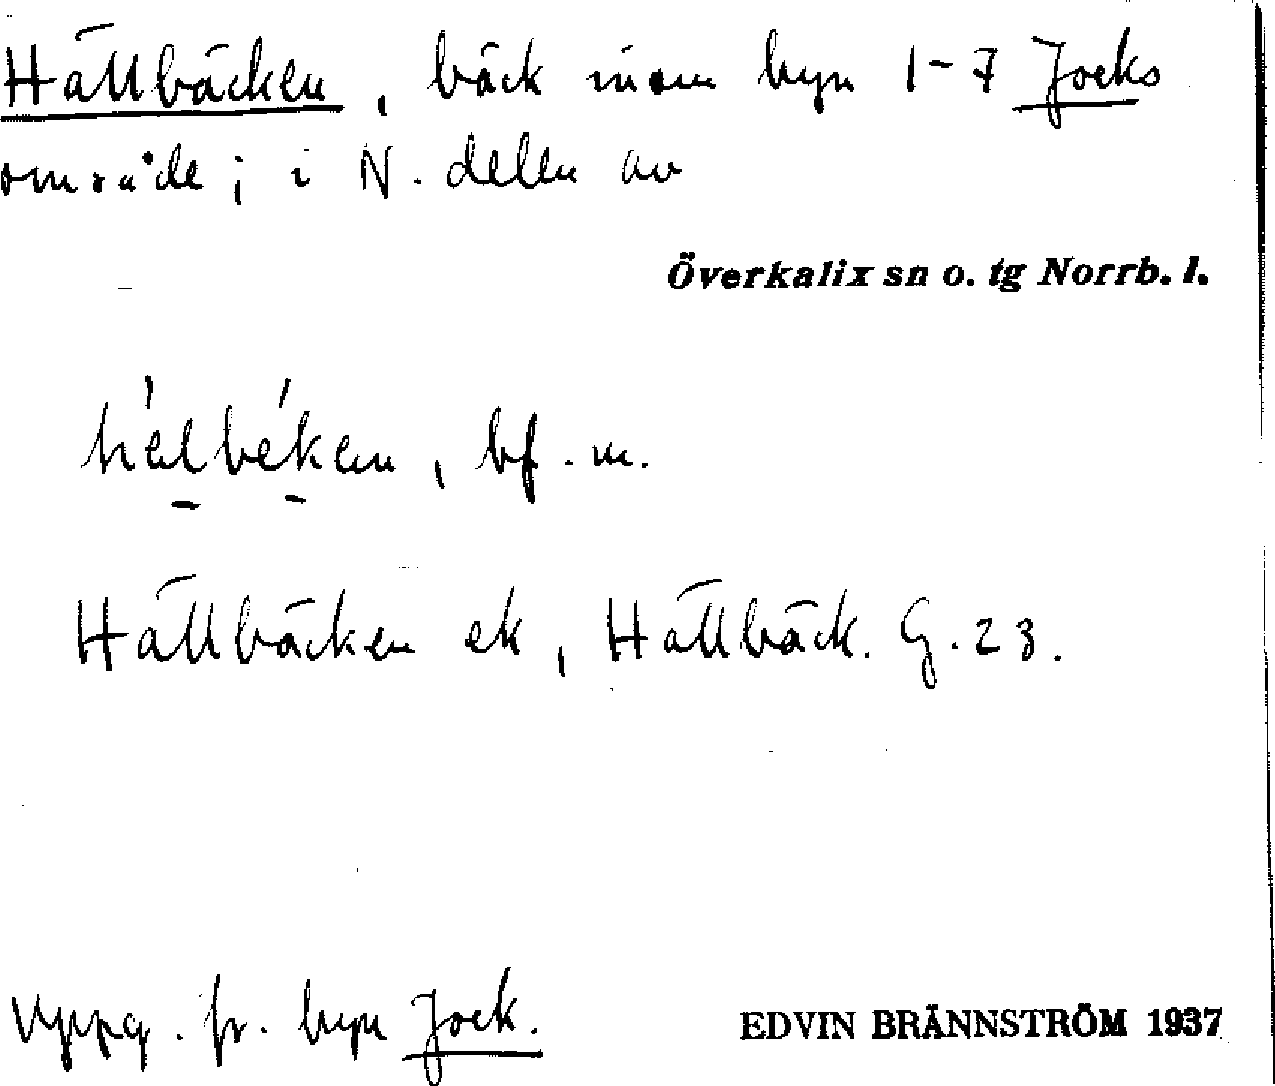 Hällbäcken, bäck inom byn 1-7 Jocks
område; i N. delen av
Överkalix sn o. tg Norrb. l.
hélbéken, bf. m.
Hällbäcken ek, Hällbäck. G. 23.
Uppg. fr. byn Jock.
EDVIN BRÄNNSTRÖM 1937